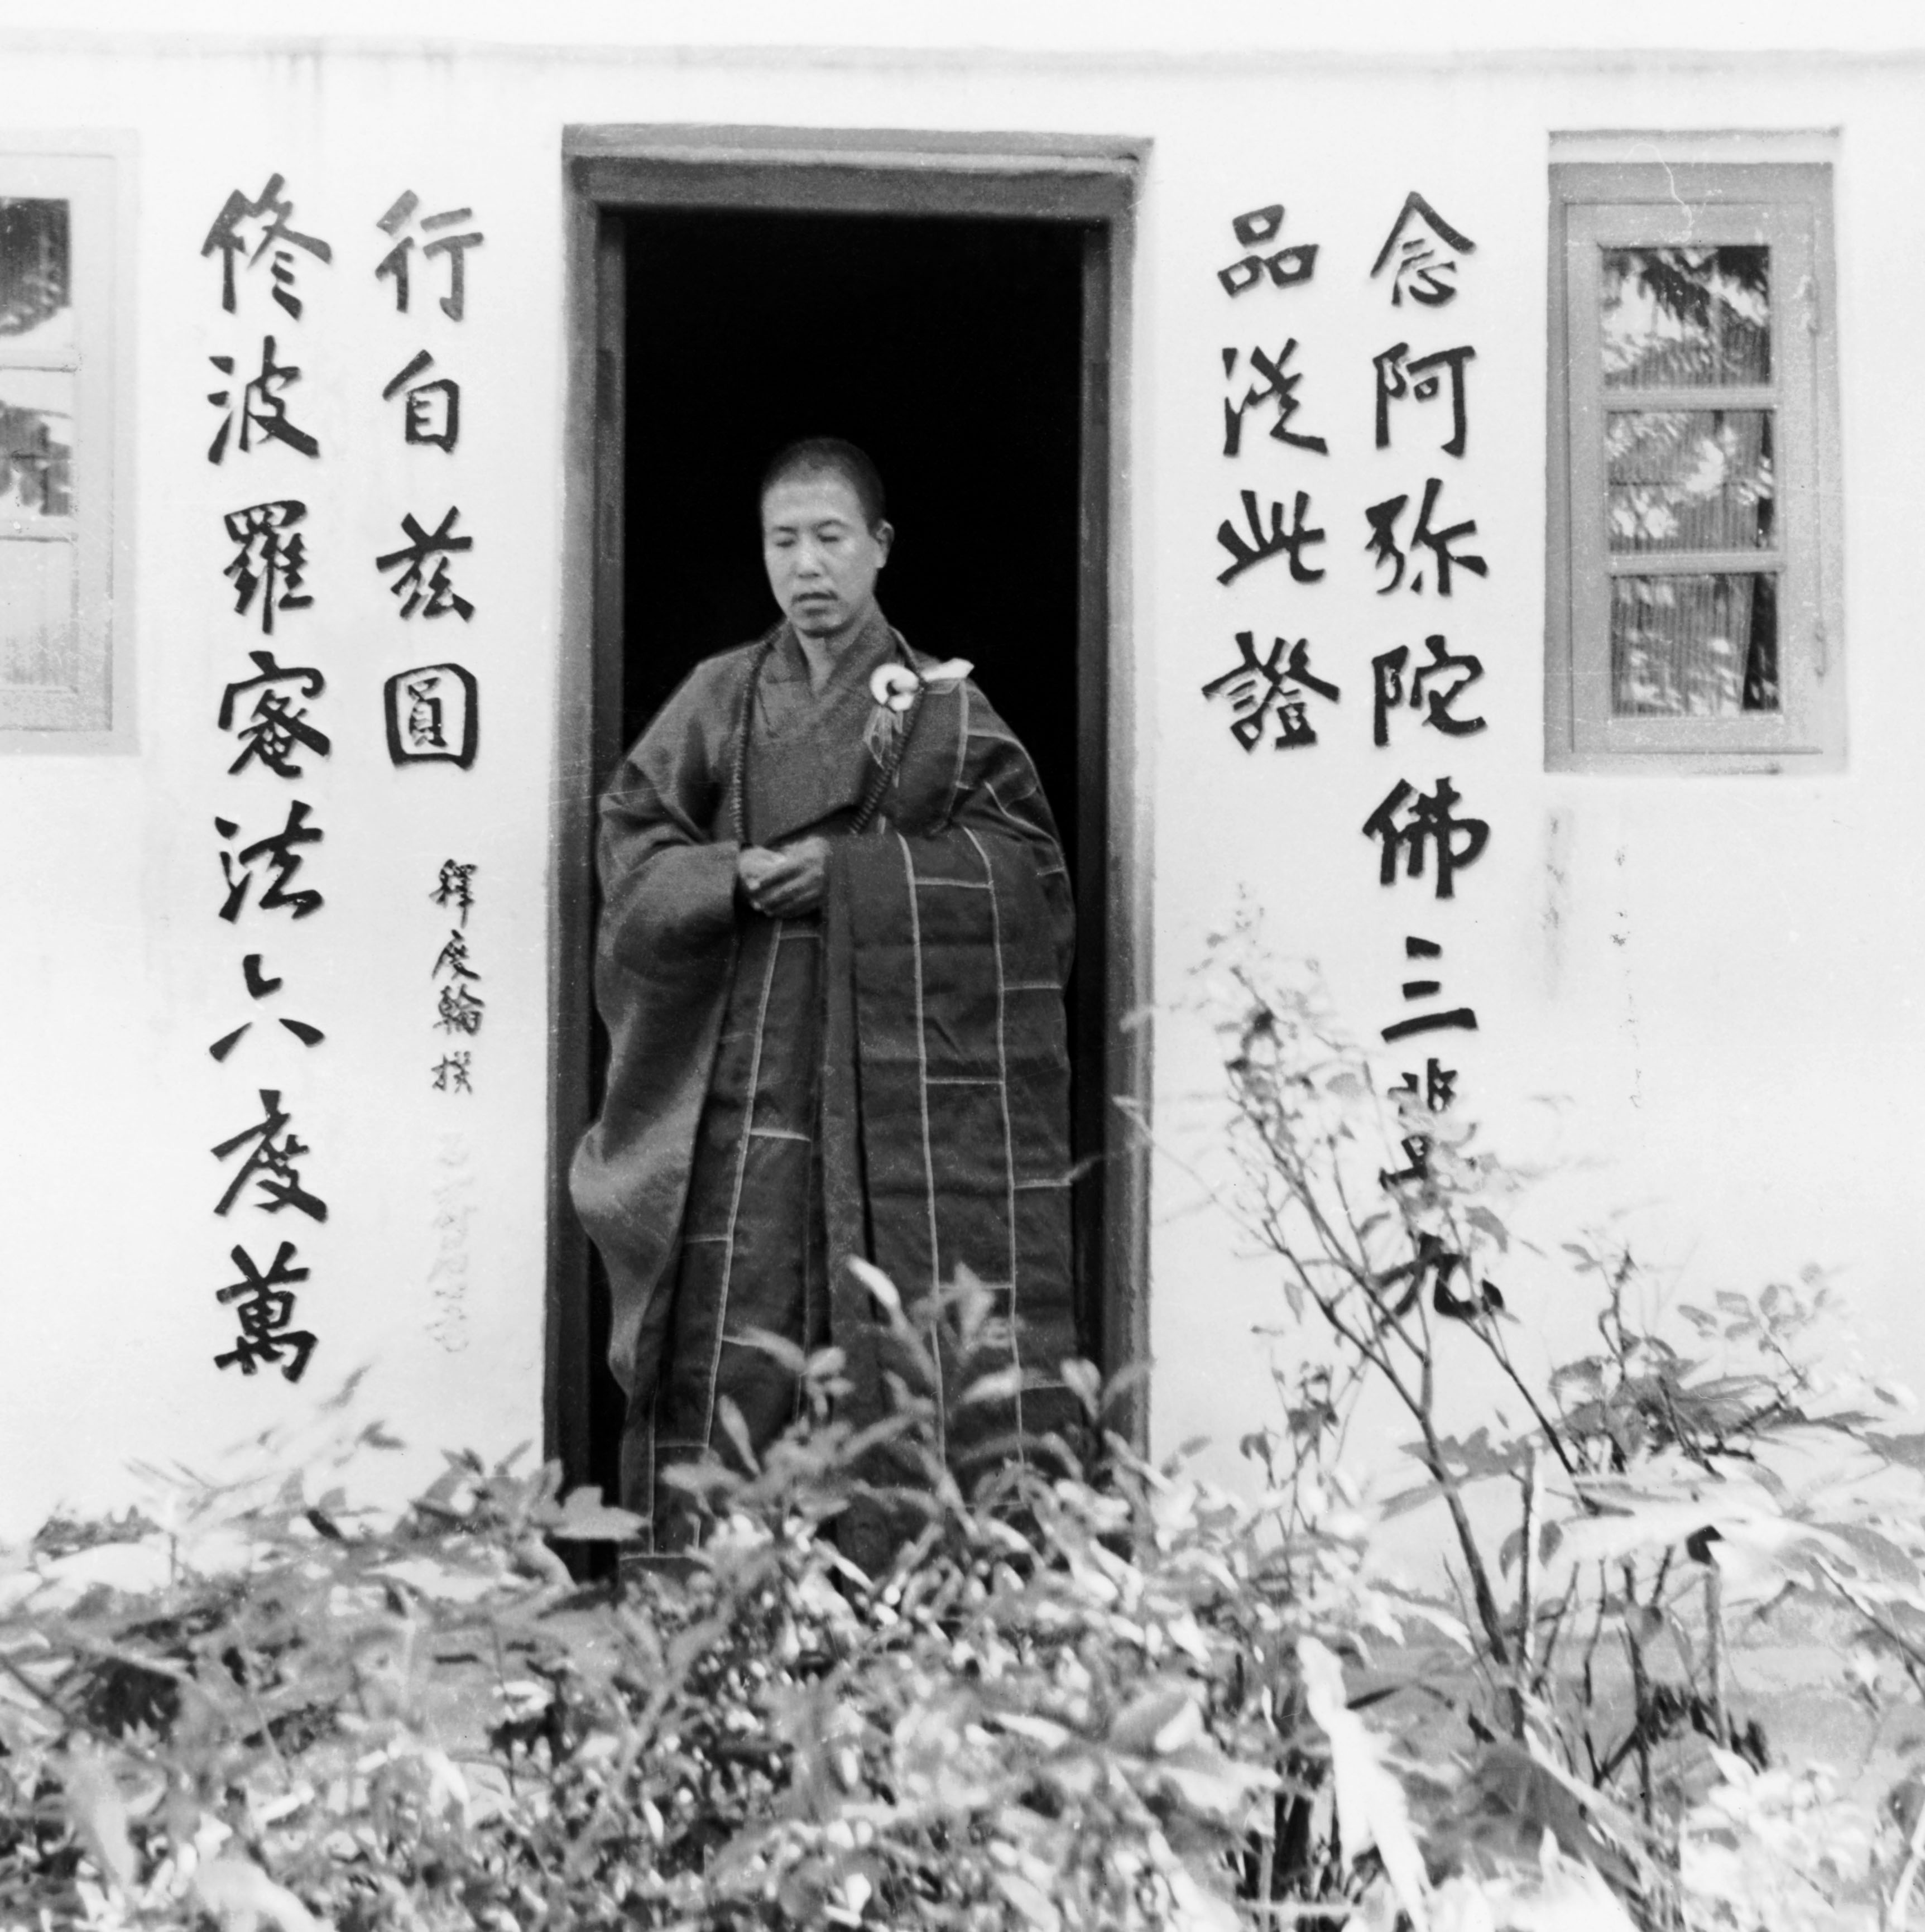 念阿弥陀佛三輩九
品從此證
修波羅蜜法六度萬
行自茲圓
釋度輪撰